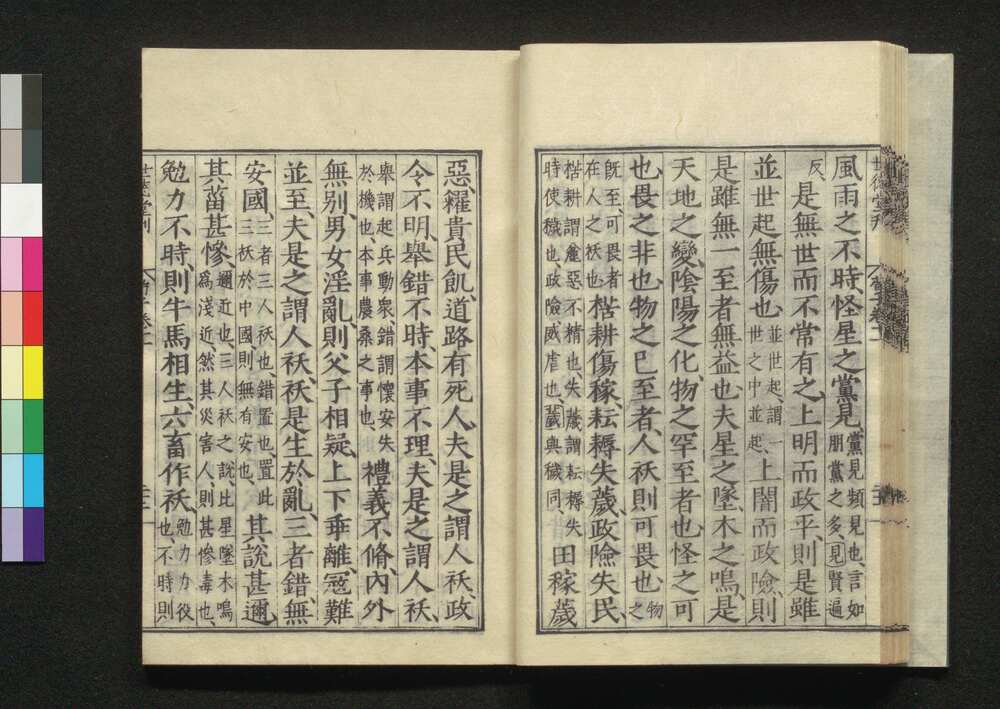 風雨之不時、怪星之黨見、黨見頻見也、言如
朋黨之多、見賢遍
反、是無世而不常有之、上明而政平、則是雖
並世起無傷也、並世起、謂一
世之中並起、上闇而政險、則
是雖無一至者無益也、夫星之墜、木之鳴、是
天地之變、陰陽之化、物之罕至者也、怪之可
也、畏之非也、物之已至者、人祅則可畏也、物之
既至、可畏者
在人之祅也、楛耕傷稼、耘耨失薉、政險失民、
楛耕謂麤惡不精也、失薉謂耘耨失
時使穢也、政險威虐也、薉與穢同、田稼薉
惡、糴貴民飢、道路有死人、夫是之謂人祅、政
令不明、舉錯不時、本事不理、夫是之謂人祅、
舉謂起兵動衆、錯謂懷安失
於機也、本事農桑之事也、禮義不脩、內外
無別、男女淫亂、則父子相疑、上下乖離、寇難
並至、夫是之謂人祅、祅是生於亂、三者錯、無
安國、三者三人祅也、錯置也、置此
三祅於中國則無有安也、其說甚邇、
其菑甚慘、邇近也、三人祅之說、比星墜木鳴
爲淺近、然其災害人、則甚慘毒也、
勉力不時、則牛馬相生、六畜作祅、勉力力役
也、不時則